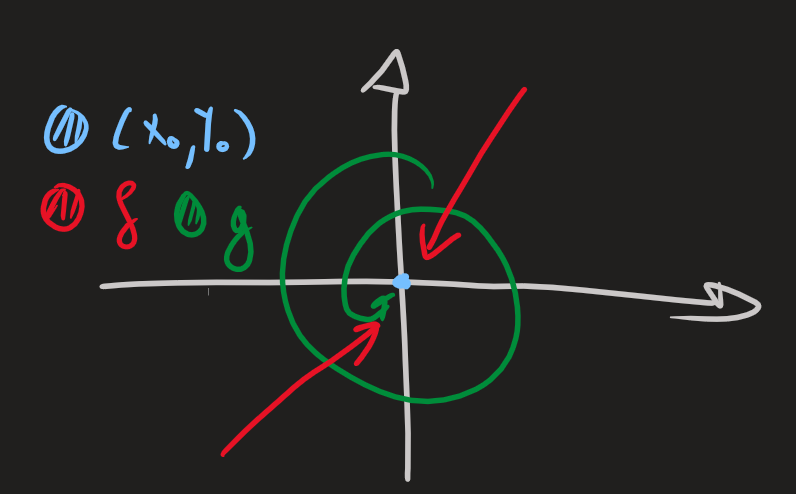 (x₀, y₀)
f g